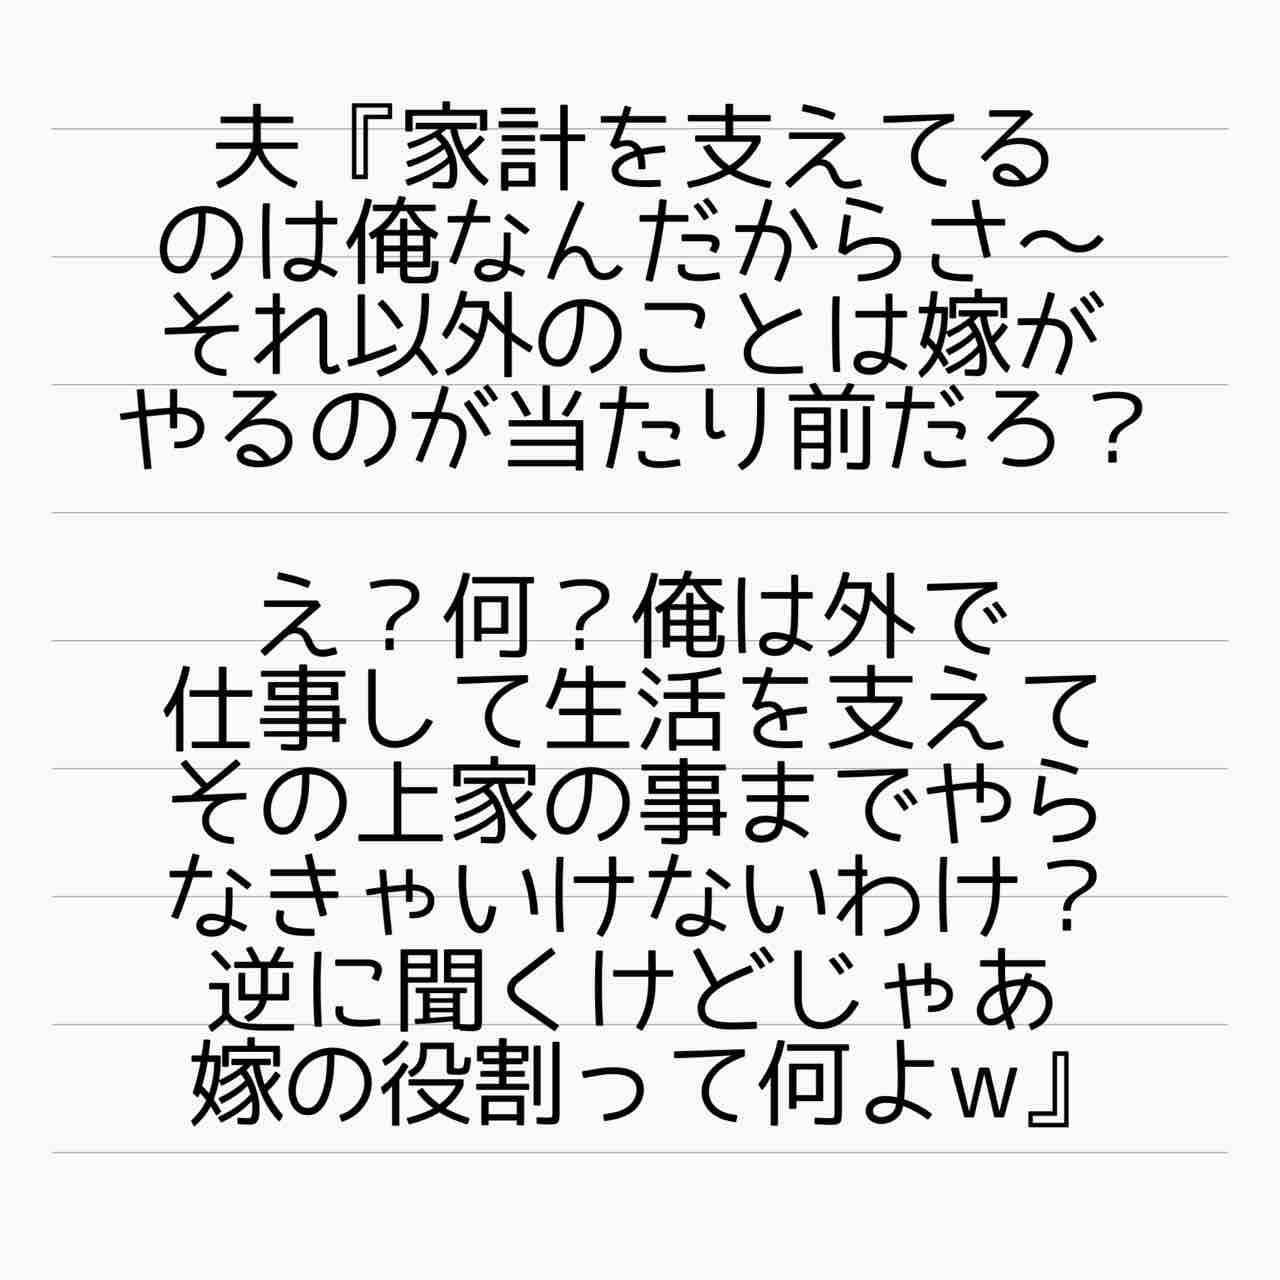 夫『家計を支えてる
のは俺なんだからさ〜
それ以外のことは嫁が
やるのが当たり前だろ？
え？何？俺は外で
仕事して生活を支えて
その上家の事までやら
なきゃいけないわけ？
逆に聞くけどじゃあ
嫁の役割って何よw』